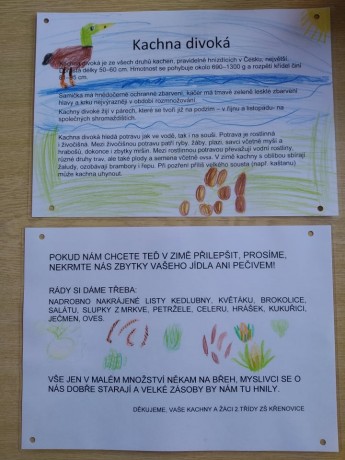 Kachna divoká
Kachna divoká je ze všech druhů kachen, pravidelně hnízdících v Česku, největší.
Dorůstá délky 50–60 cm. Hmotnost se pohybuje okolo 690–1300 g a rozpětí křídel činí
81–95 cm.
Samička má hnědočerné ochranné zbarvení, kačer má tmavě zelené lesklé zbarvení
hlavy a krku nejvýrazněji v období rozmnožování.
Kachny divoké žijí v párech, které se tvoří již na podzim – v říjnu a listopadu- na
společných shromaždištích.
Kachna divoká hledá potravu jak ve vodě, tak i na souši. Potrava je rostlinná
i živočišná. Mezi živočišnou potravu patří ryby, žáby, plazi, savci včetně myší a
hrabošů, dokonce i zbytky mršin. Mezi rostlinnou potravou převažují vodní rostliny,
různé druhy trav, ale také plody a semena včetně ovsa. V zimě kachny s oblibou sbírají
žaludy, ozobávají brambory i řepu. Při pozření příliš velkého sousta (např. kaštanu)
může kachna uhynout.
POKUD NÁM CHCETE TEĎ V ZIMĚ PŘILEPŠIT, PROSÍME,
NEKRMTE NÁS ZBYTKY VAŠEHO JÍDLA ANI PEČIVEM!
RÁDY SI DÁME TŘEBA:
NADROBNO NAKRÁJENÉ LISTY KEDLUBNY, KVĚTÁKU, BROKOLICE,
SALÁTU, SLUPKY Z MRKVE, PETRŽELE, CELERU, HRÁŠEK, KUKUŘICI,
JEČMEN, OVES.
VŠE JEN V MALÉM MNOŽSTVÍ NĚKAM NA BŘEH, MYSLIVCI SE O
NÁS DOBŘE STARAJÍ A VELKÉ ZÁSOBY BY NÁM TU HNILY.
DĚKUJEME, VAŠE KACHNY A ŽÁCI 2.TŘÍDY ZŠ KŘENOVICE